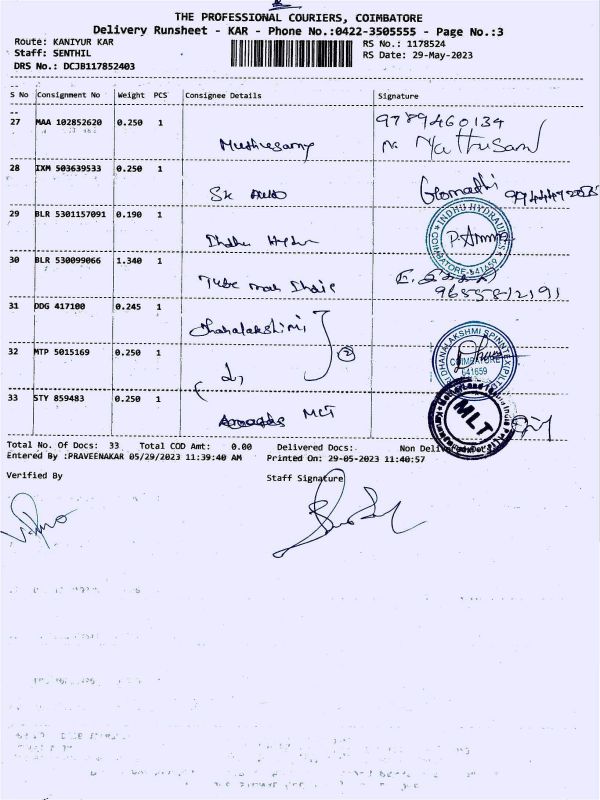 THE PROFESSIONAL COURIERS, COIMBATORE
Delivery Runsheet - KAR - Phone No.:0422-3505555 - Page No.:3
Route: KANIYUR KAR
RS No.: 1178524
Staff: SENTHIL
RS Date: 29-May-2023
DRS No.: DCJB117852403
S No Consignment No Weight PCS Consignee Details Signature
27 MAA 102852620 0.250 1 9789460134
Muthusamy
28 IXM 503639533 0.250 1
SK Auto Gomathi
29 BLR 5301157091 0.190 1
INDHU HYDRAULICS
COIMBATORE-641659
30 BLR 530099066 1.340 1
31 DDG 417100 0.245 1
Dhanalakshimi
2
32 MTP 5015169 0.250 1
DHANALAKSHMI SPINNTEX (P) LTD
COIMBATORE
641659
33 STY 859483 0.250 1
MLT
MLT
Total No. Of Docs: 33 Total COD Amt: 0.00 Delivered Docs: Non Delivered
Entered By :PRAVEENAKAR 05/29/2023 11:39:40 AM Printed On: 29-05-2023 11:40:57
Verified By Staff Signature